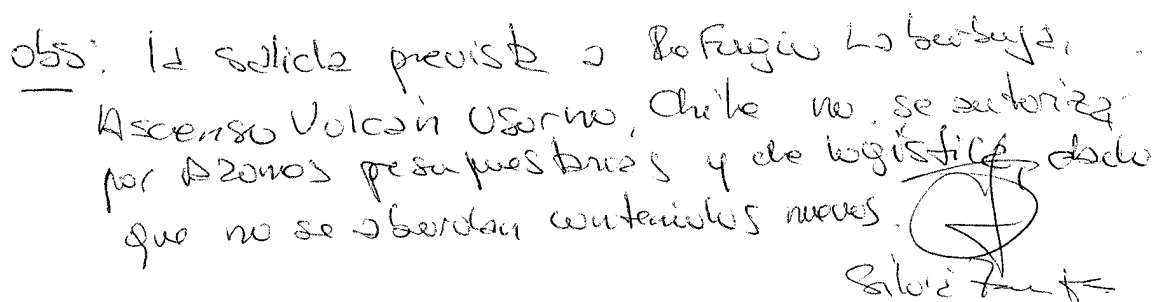 obs: la salida prevista a Refugio La Burbuja,
Ascenso Volcán Osorno, Chile no se autoriza
por razones presupuestarias y de logística, dado
que no se abordan contenidos nuevos.
Silvia